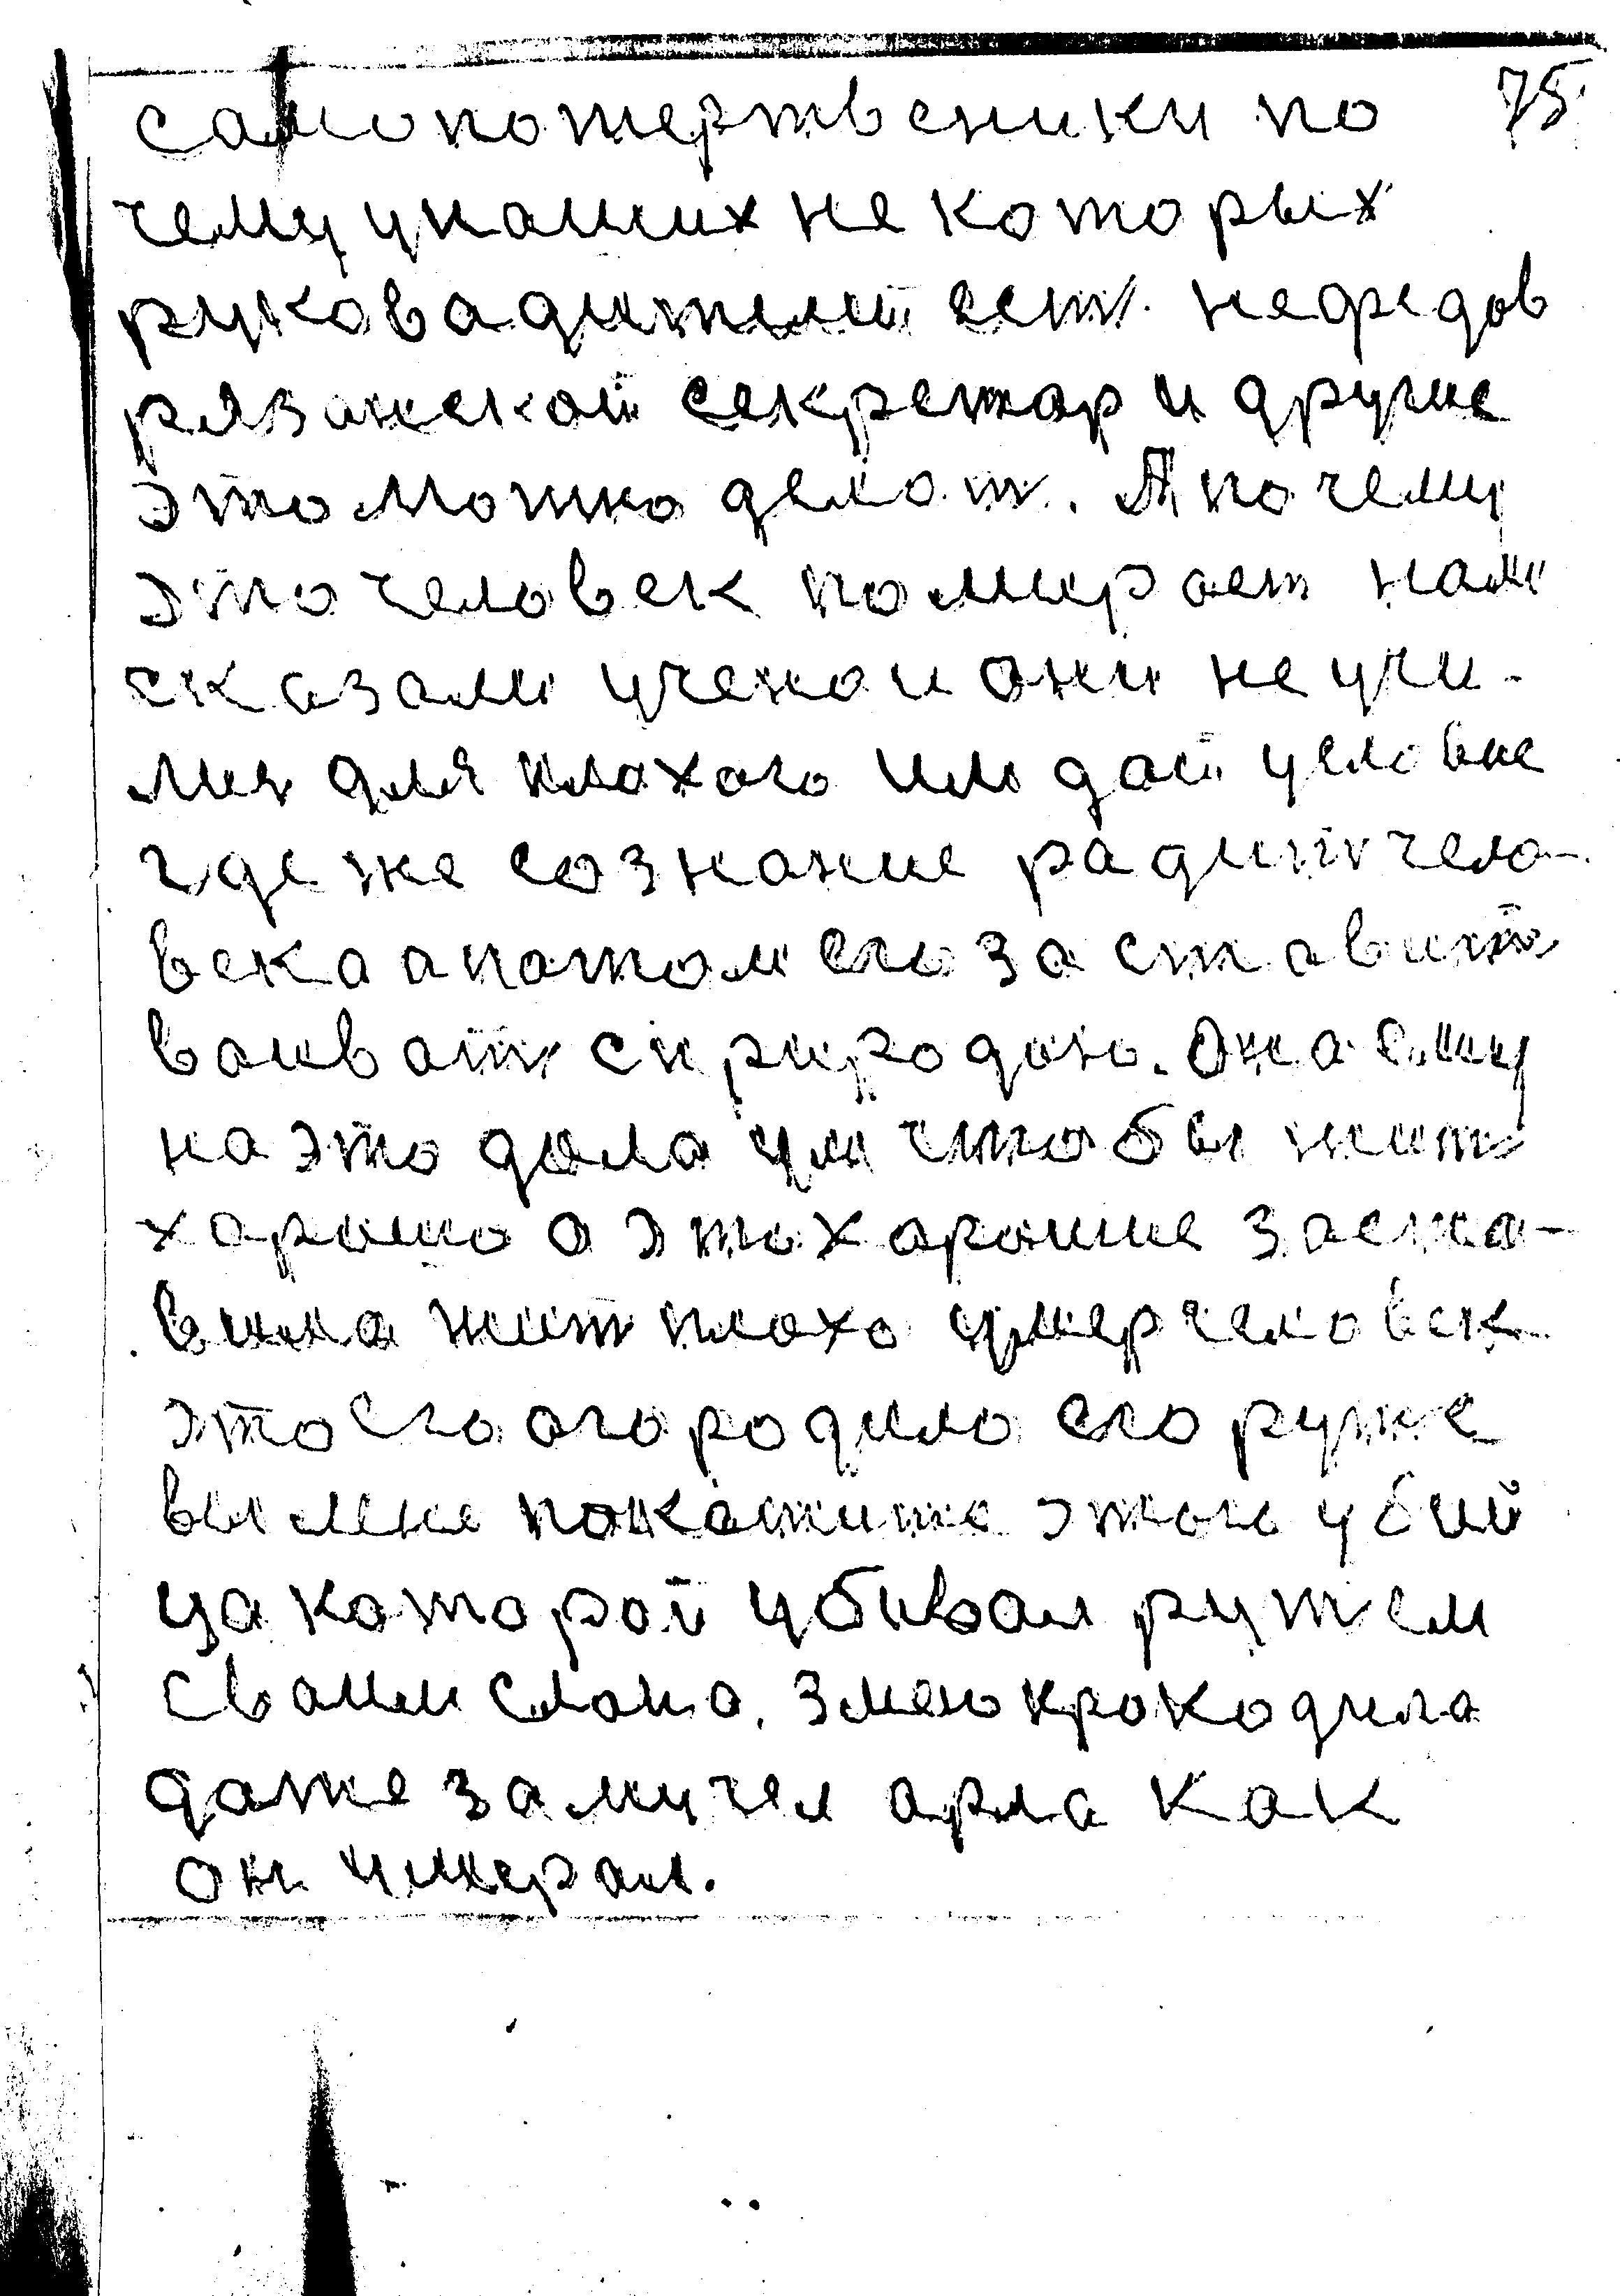 самопотертвеники по 75
чему унаших не которых
руковадителий ест. нефедов
рязанской секретар и другие
это мотно делат. А почему
это человек помирает нам
сказали ученои они не учи-
лис для плахого им дай условие
где же сознание радит чело-
века апотом его за ставит
ваиват сприродою. Она ему
на это дала ум чтобы жит
харошо а это харошие заста-
вила жит плохо умер человек
это его огородило его руже
вы мне покатите этого убий
ца каторой убивал рутем
сваим слона. змею крокодила
даже замучел арла как
он умерал.